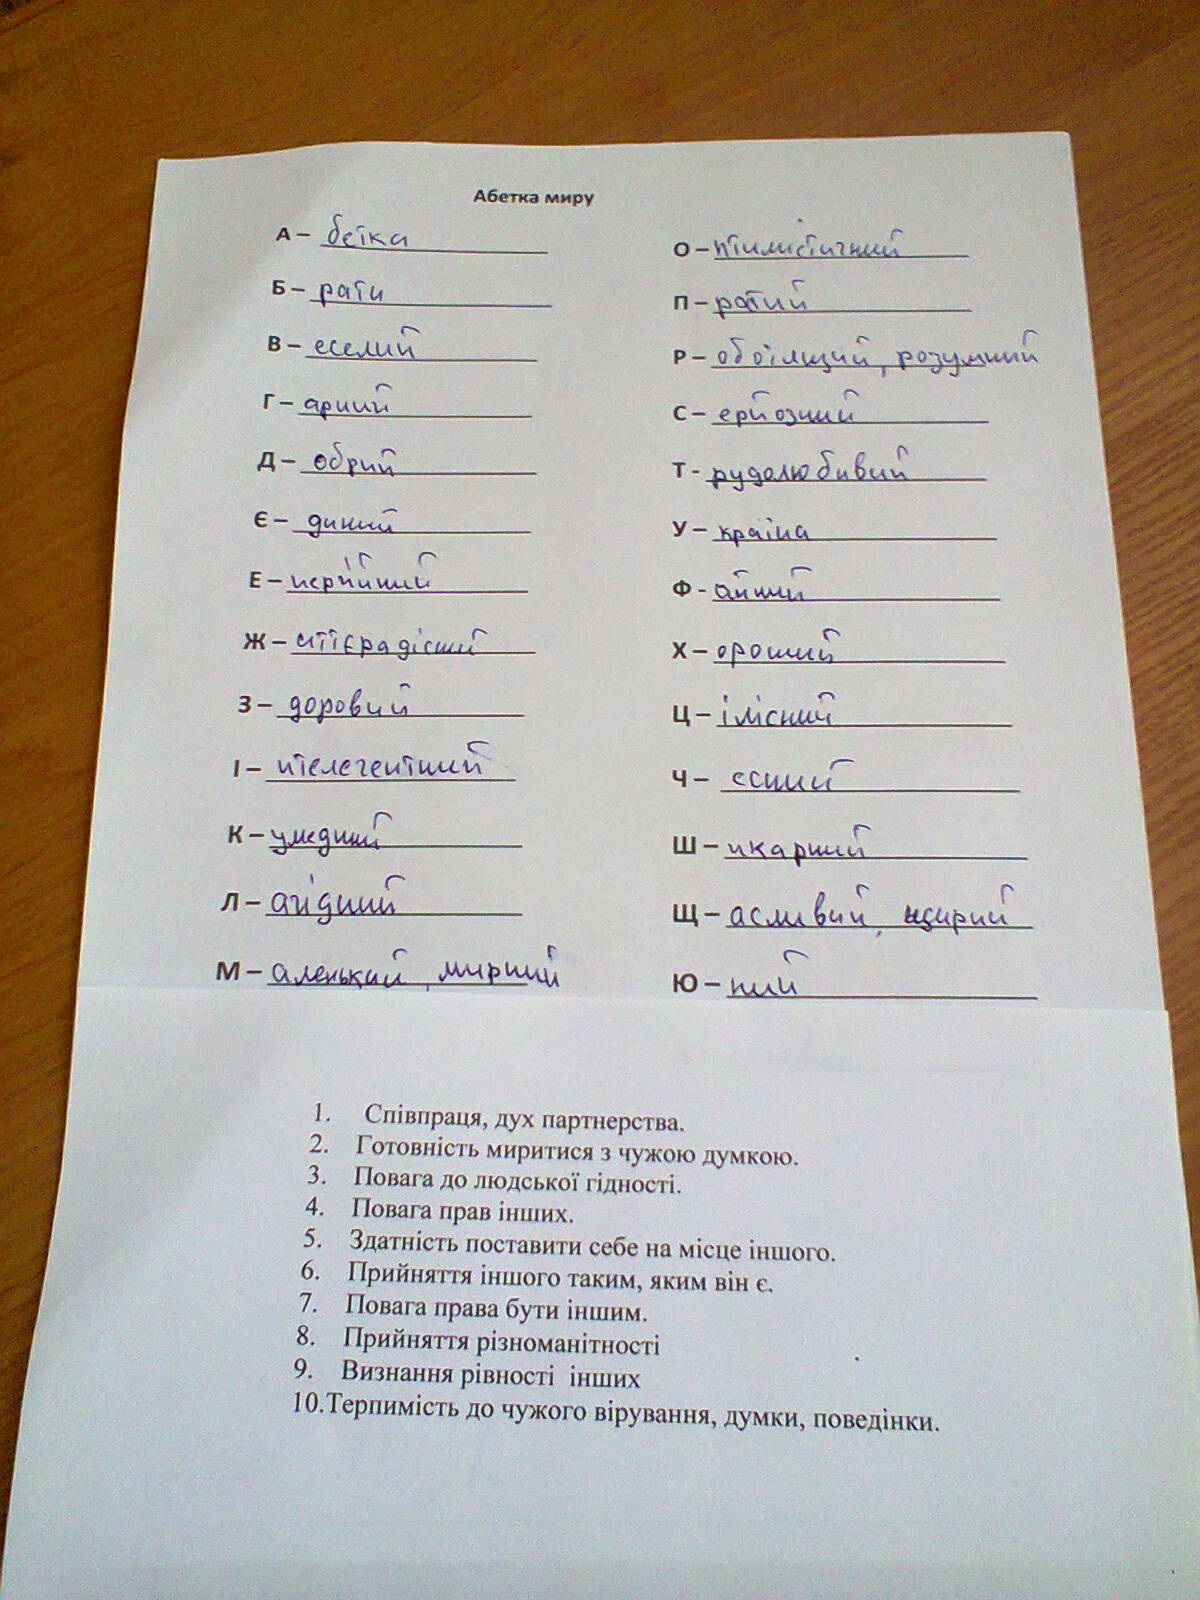 Абетка миру
А – бетка
Б – рати
В – еселий
Г – арний
Д – обрий
Є – диний
Е – нергійний
Ж – иттєрадісний
З – доровий
І – нтелегентний
К – умедний
Л – агідний
М – аленький, мирний
О – птимістичний
П – ратий
Р – обоїлщий, розумний
С – ерйозний
Т - рудолюбивий
У – країна
Ф - айний
Х – ороший
Ц – ілісний
Ч – есний
Ш –икарний
Щ – асливий, щирий
Ю – ний
1. Співпраця, дух партнерства.
2. Готовність миритися з чужою думкою.
3. Повага до людської гідності.
4. Повага прав інших.
5. Здатність поставити себе на місце іншого.
6. Прийняття іншого таким, яким він є.
7. Повага права бути іншим.
8. Прийняття різноманітності
9. Визнання рівності інших
10.Терпимість до чужого вірування, думки, поведінки.